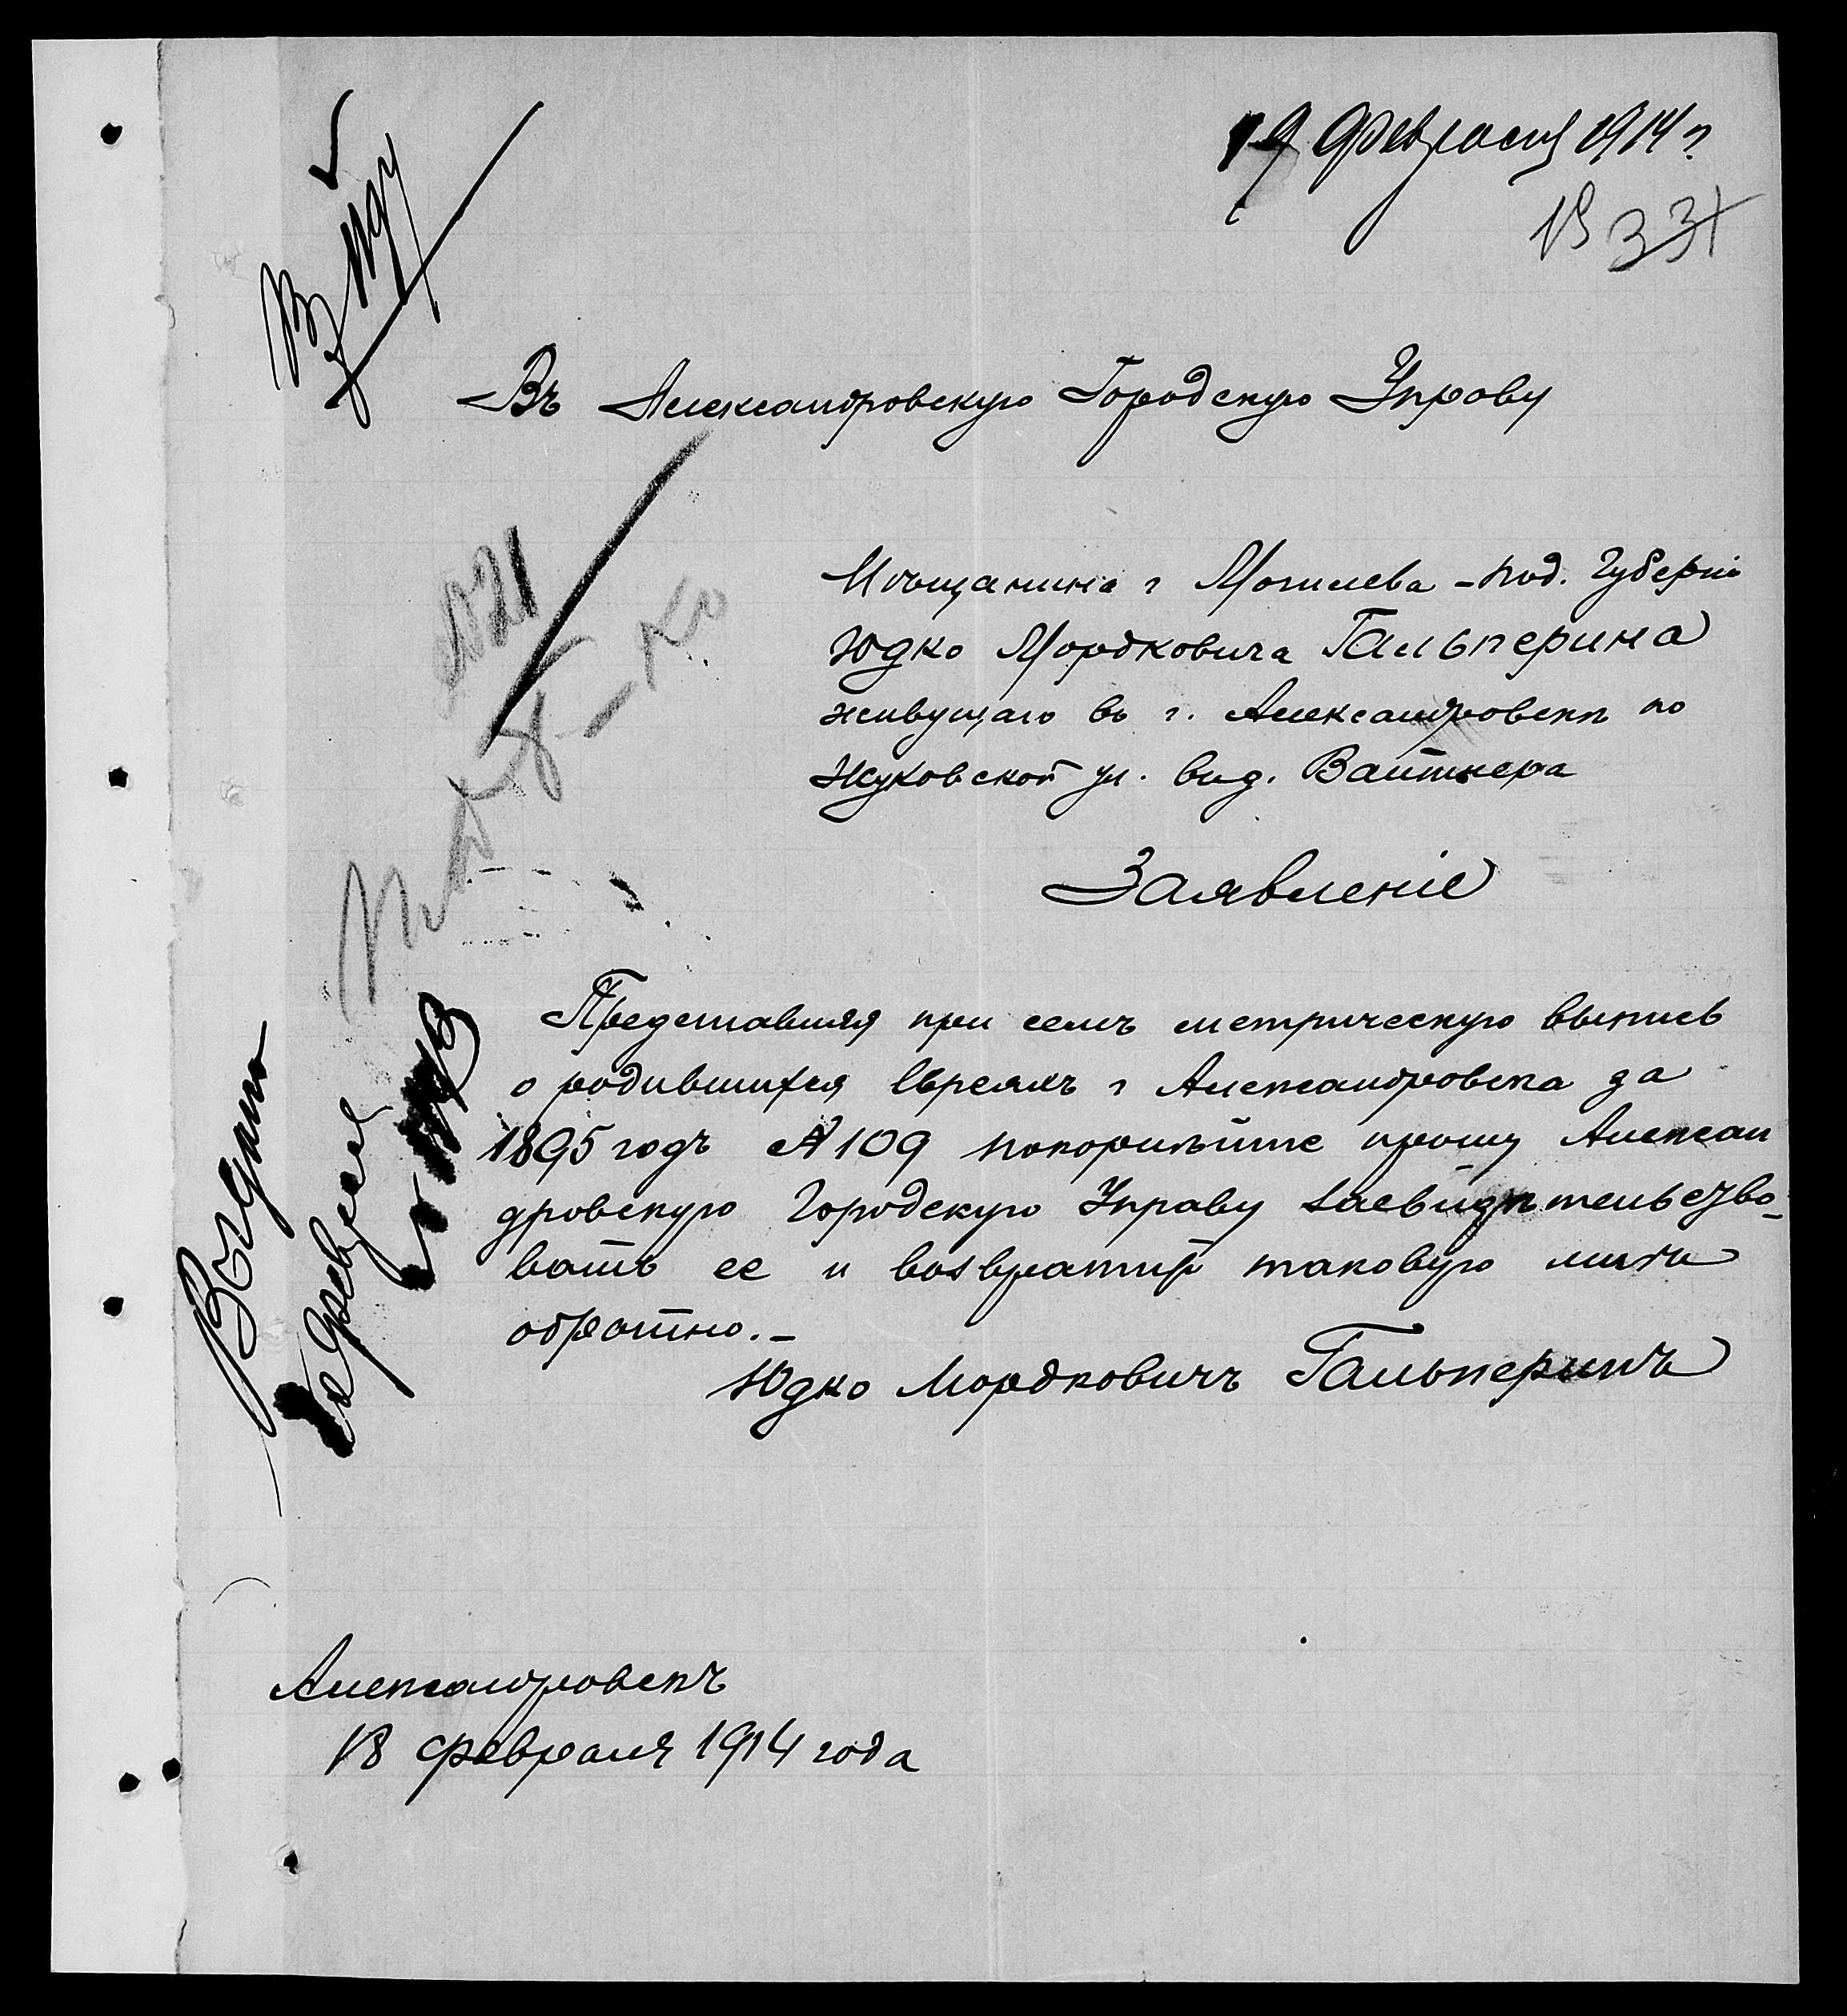 19 Февраля 1914 г.
Въ Александровскую Городскую Управу
Мѣщанина г Могилева - под. Губерніи
Юдко Мордковича Гальперина
живущаго въ г. Александровскѣ по
Жуковской ул. в д. Вайтнера
Заявленіе
Представляя при семъ метрическую выпись
о родившихся Евреяхъ г Александровска за
1895 годъ № 109 покорнѣйше прошу Алексан
дровскую Городскую Управу засвидѣтельство-
вать ее и возвратить таковую мнѣ
обратно.-
Юдко Мордковичъ Гальперинъ
Выдано
Февраля
Александровскъ
18 февраля 1914 года